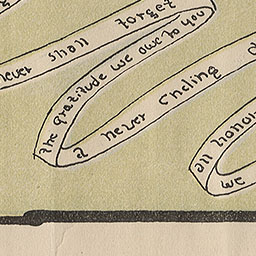 never shall forget
the gratitude we owe to you
a never ending
all honor
we